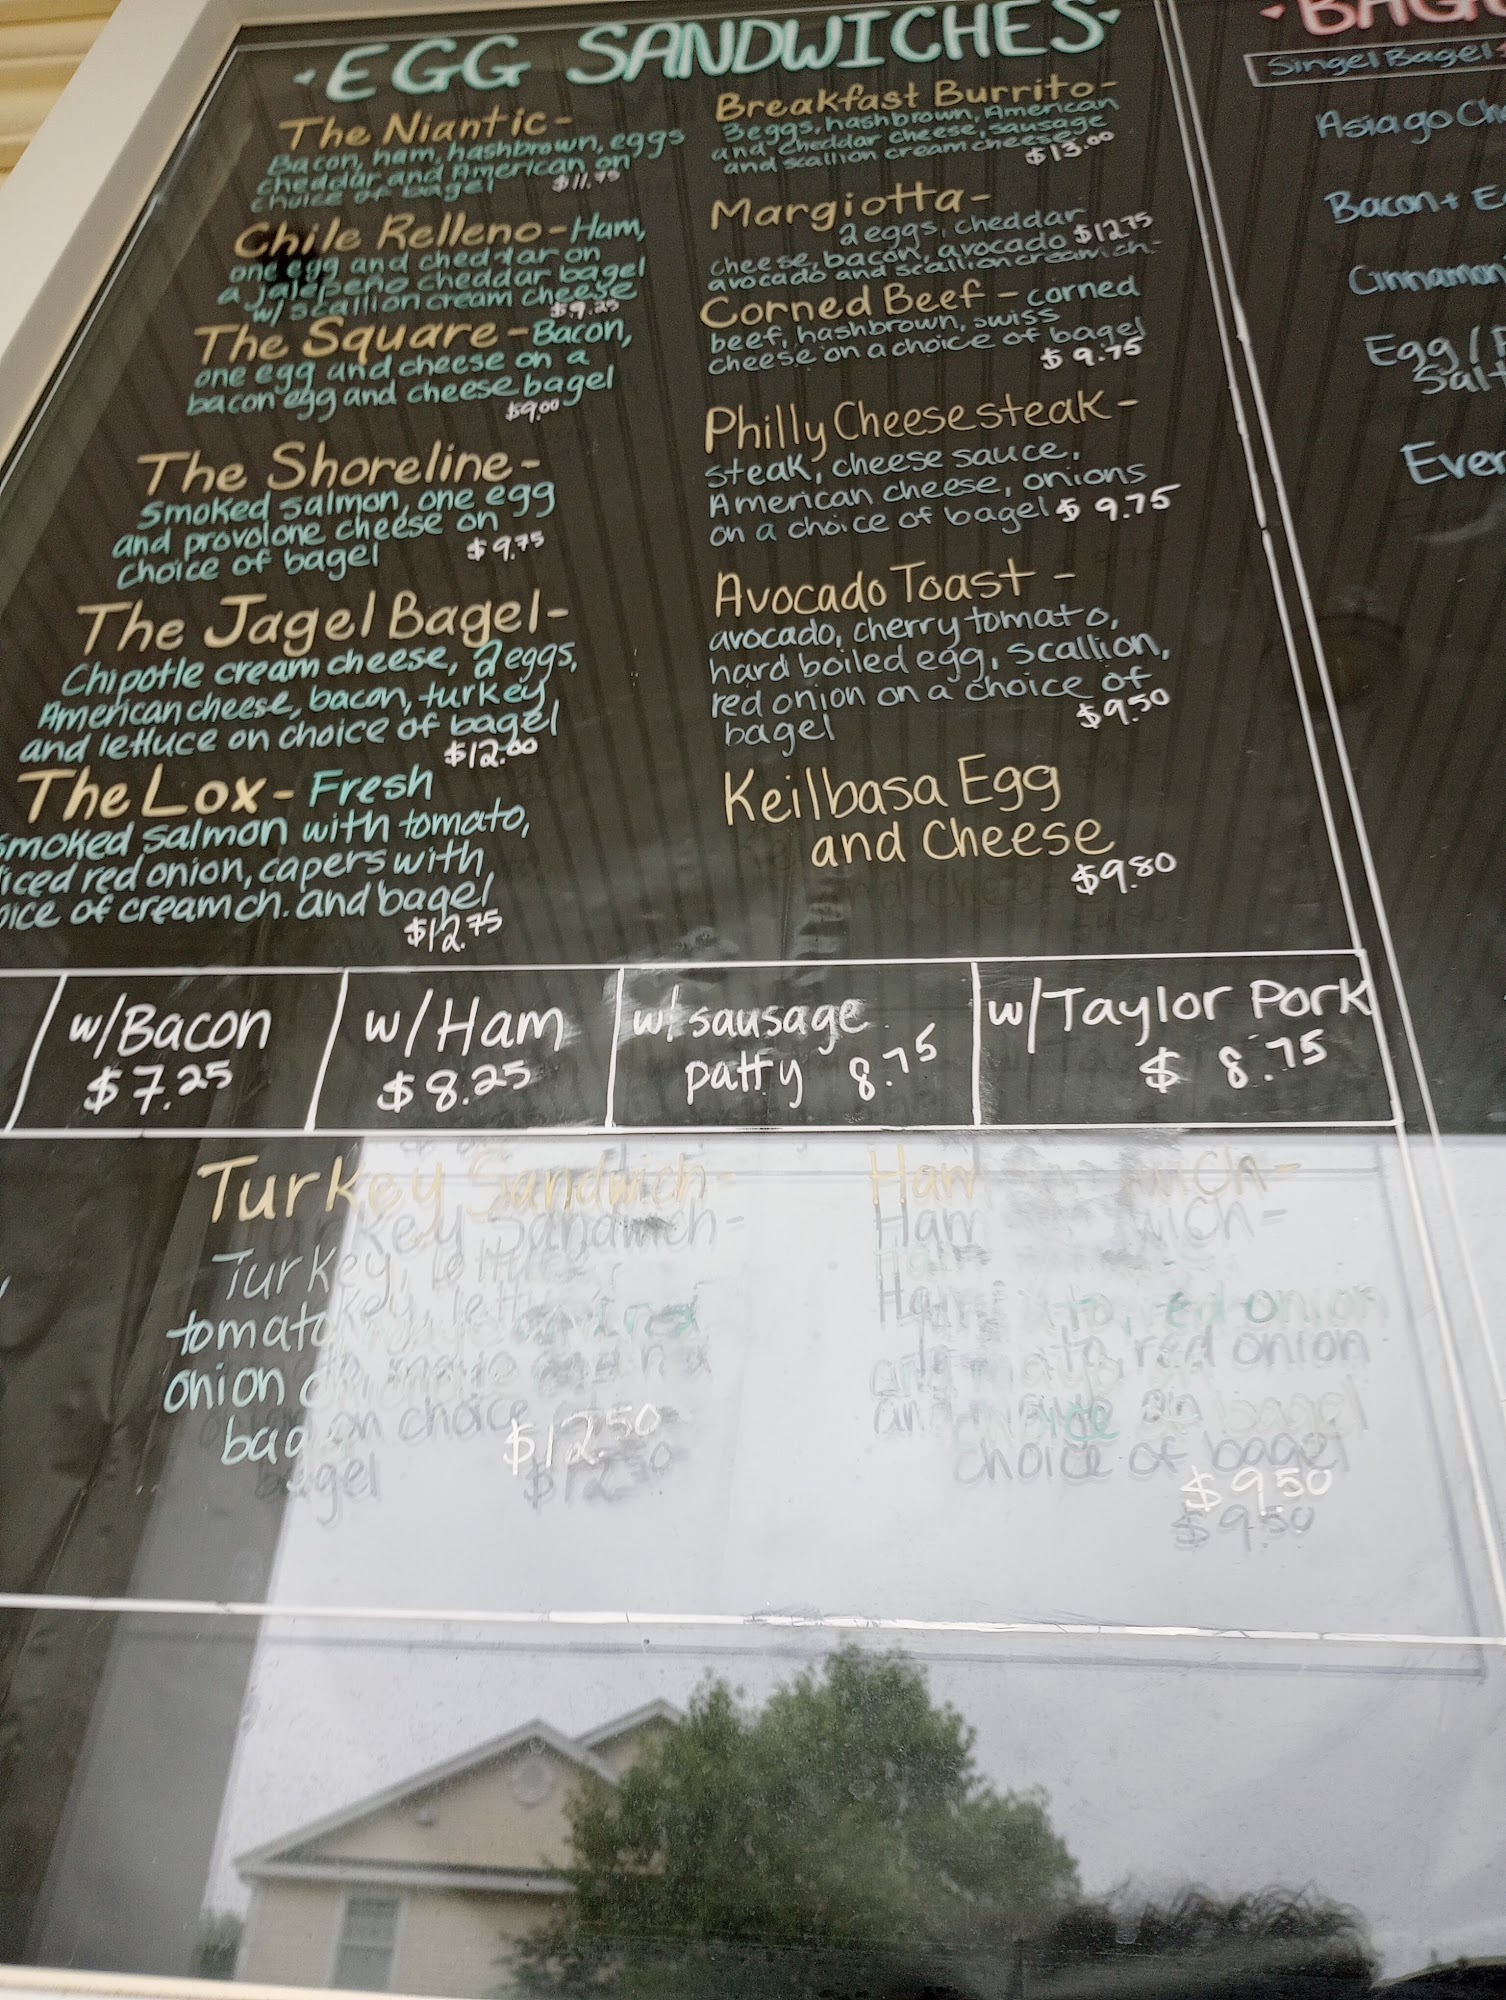 EGG SANDWICHES
The Niantic-
Bacon, ham, hashbrown, eggs
cheddar and American on
choice of bagel $11.75
Chile Relleno- Ham,
one egg and cheddar on
a jalepeno cheddar bagel
w/ scallion cream cheese
$9.25
The Square- Bacon,
one egg and cheese on a
bacon egg and cheese bagel
$9.00
The Shoreline-
Smoked salmon, one egg
and provolone cheese on
choice of bagel $9.75
The Jagel Bagel-
Chipotle cream cheese, 2 eggs,
American cheese, bacon, turkey
and lettuce on choice of bagel
$12.00
The Lox- Fresh
smoked salmon with tomato,
red onion, capers with
of cream ch. and bagel
$12.75
Breakfast Burrito-
3 eggs, hashbrown, American
and cheddar cheese, sausage
and scallion cream cheese
$13.00
Margiotta-
2 eggs, cheddar
cheese, bacon, avocado $12.75
avocado and scallion cream ch-
Corned Beef - corned
beef, hashbrown, swiss
cheese on a choice of bagel
$9.75
Philly Cheesesteak-
steak, cheese sauce,
American cheese, onions
on a choice of bagel $9.75
Avocado Toast -
avocado, cherry tomato,
hard boiled egg, scallion,
red onion on a choice of
bagel $9.50
Keilbasa Egg
and Cheese
$9.80
w/Bacon
$7.25
w/Ham
$8.25
w/ sausage
patty 8.75
w/Taylor Pork
$ 8.75
Turkey Sandwich-
Turkey, lettuce,
onion
$12.50
Ham
red onion
choice of bagel
$9.50
BAG
Singel Bagel
Asiago
Bacon +
Cinnamon
Egg /
Salt